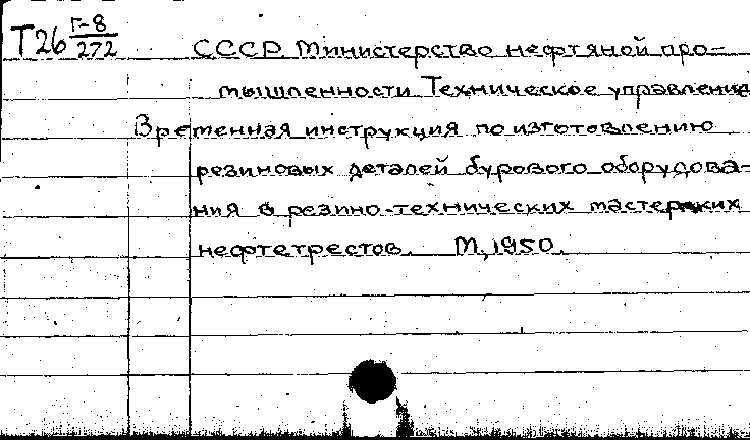 Т26 Г-8/272
СССР. Министерство нефтяной про-
мышленности. Техническое управление
Временная инструкция по изготовлению
резиновых деталей бурового оборудова-
ния в резино-технических мастерских
нефтетрестов. М., 1950.